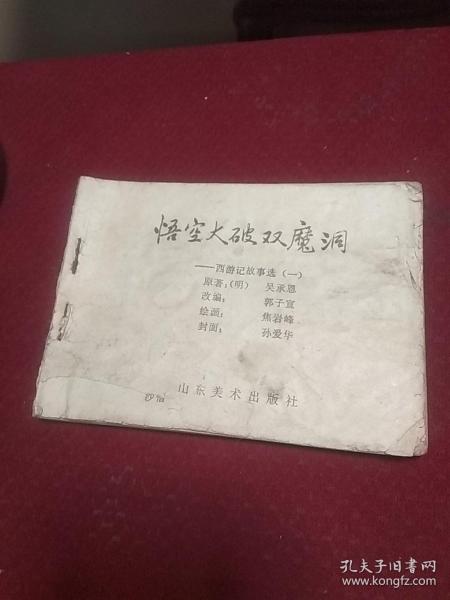 悟空大破双魔洞
——西游记故事选(一)
原著:(明) 吴承恩
改编: 郭子宣
绘画: 焦岩峰
封面: 孙爱华
山东美术出版社
孔夫子旧书网
www.kongfz.com